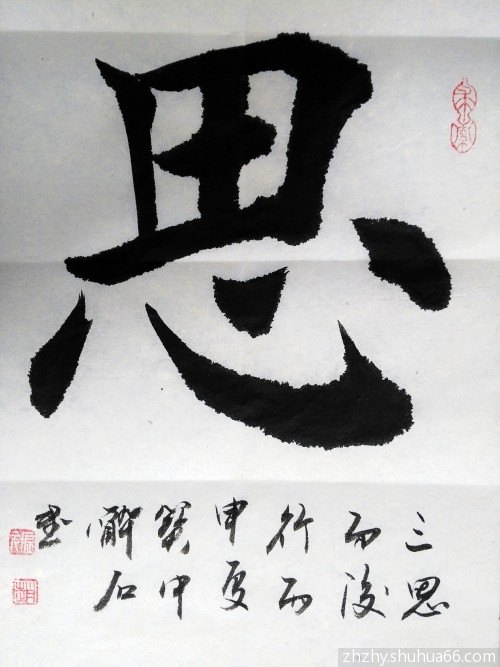 思
三思
而後
行丙
申夏
中
醉石
書
zhzhy.shuhua66.com